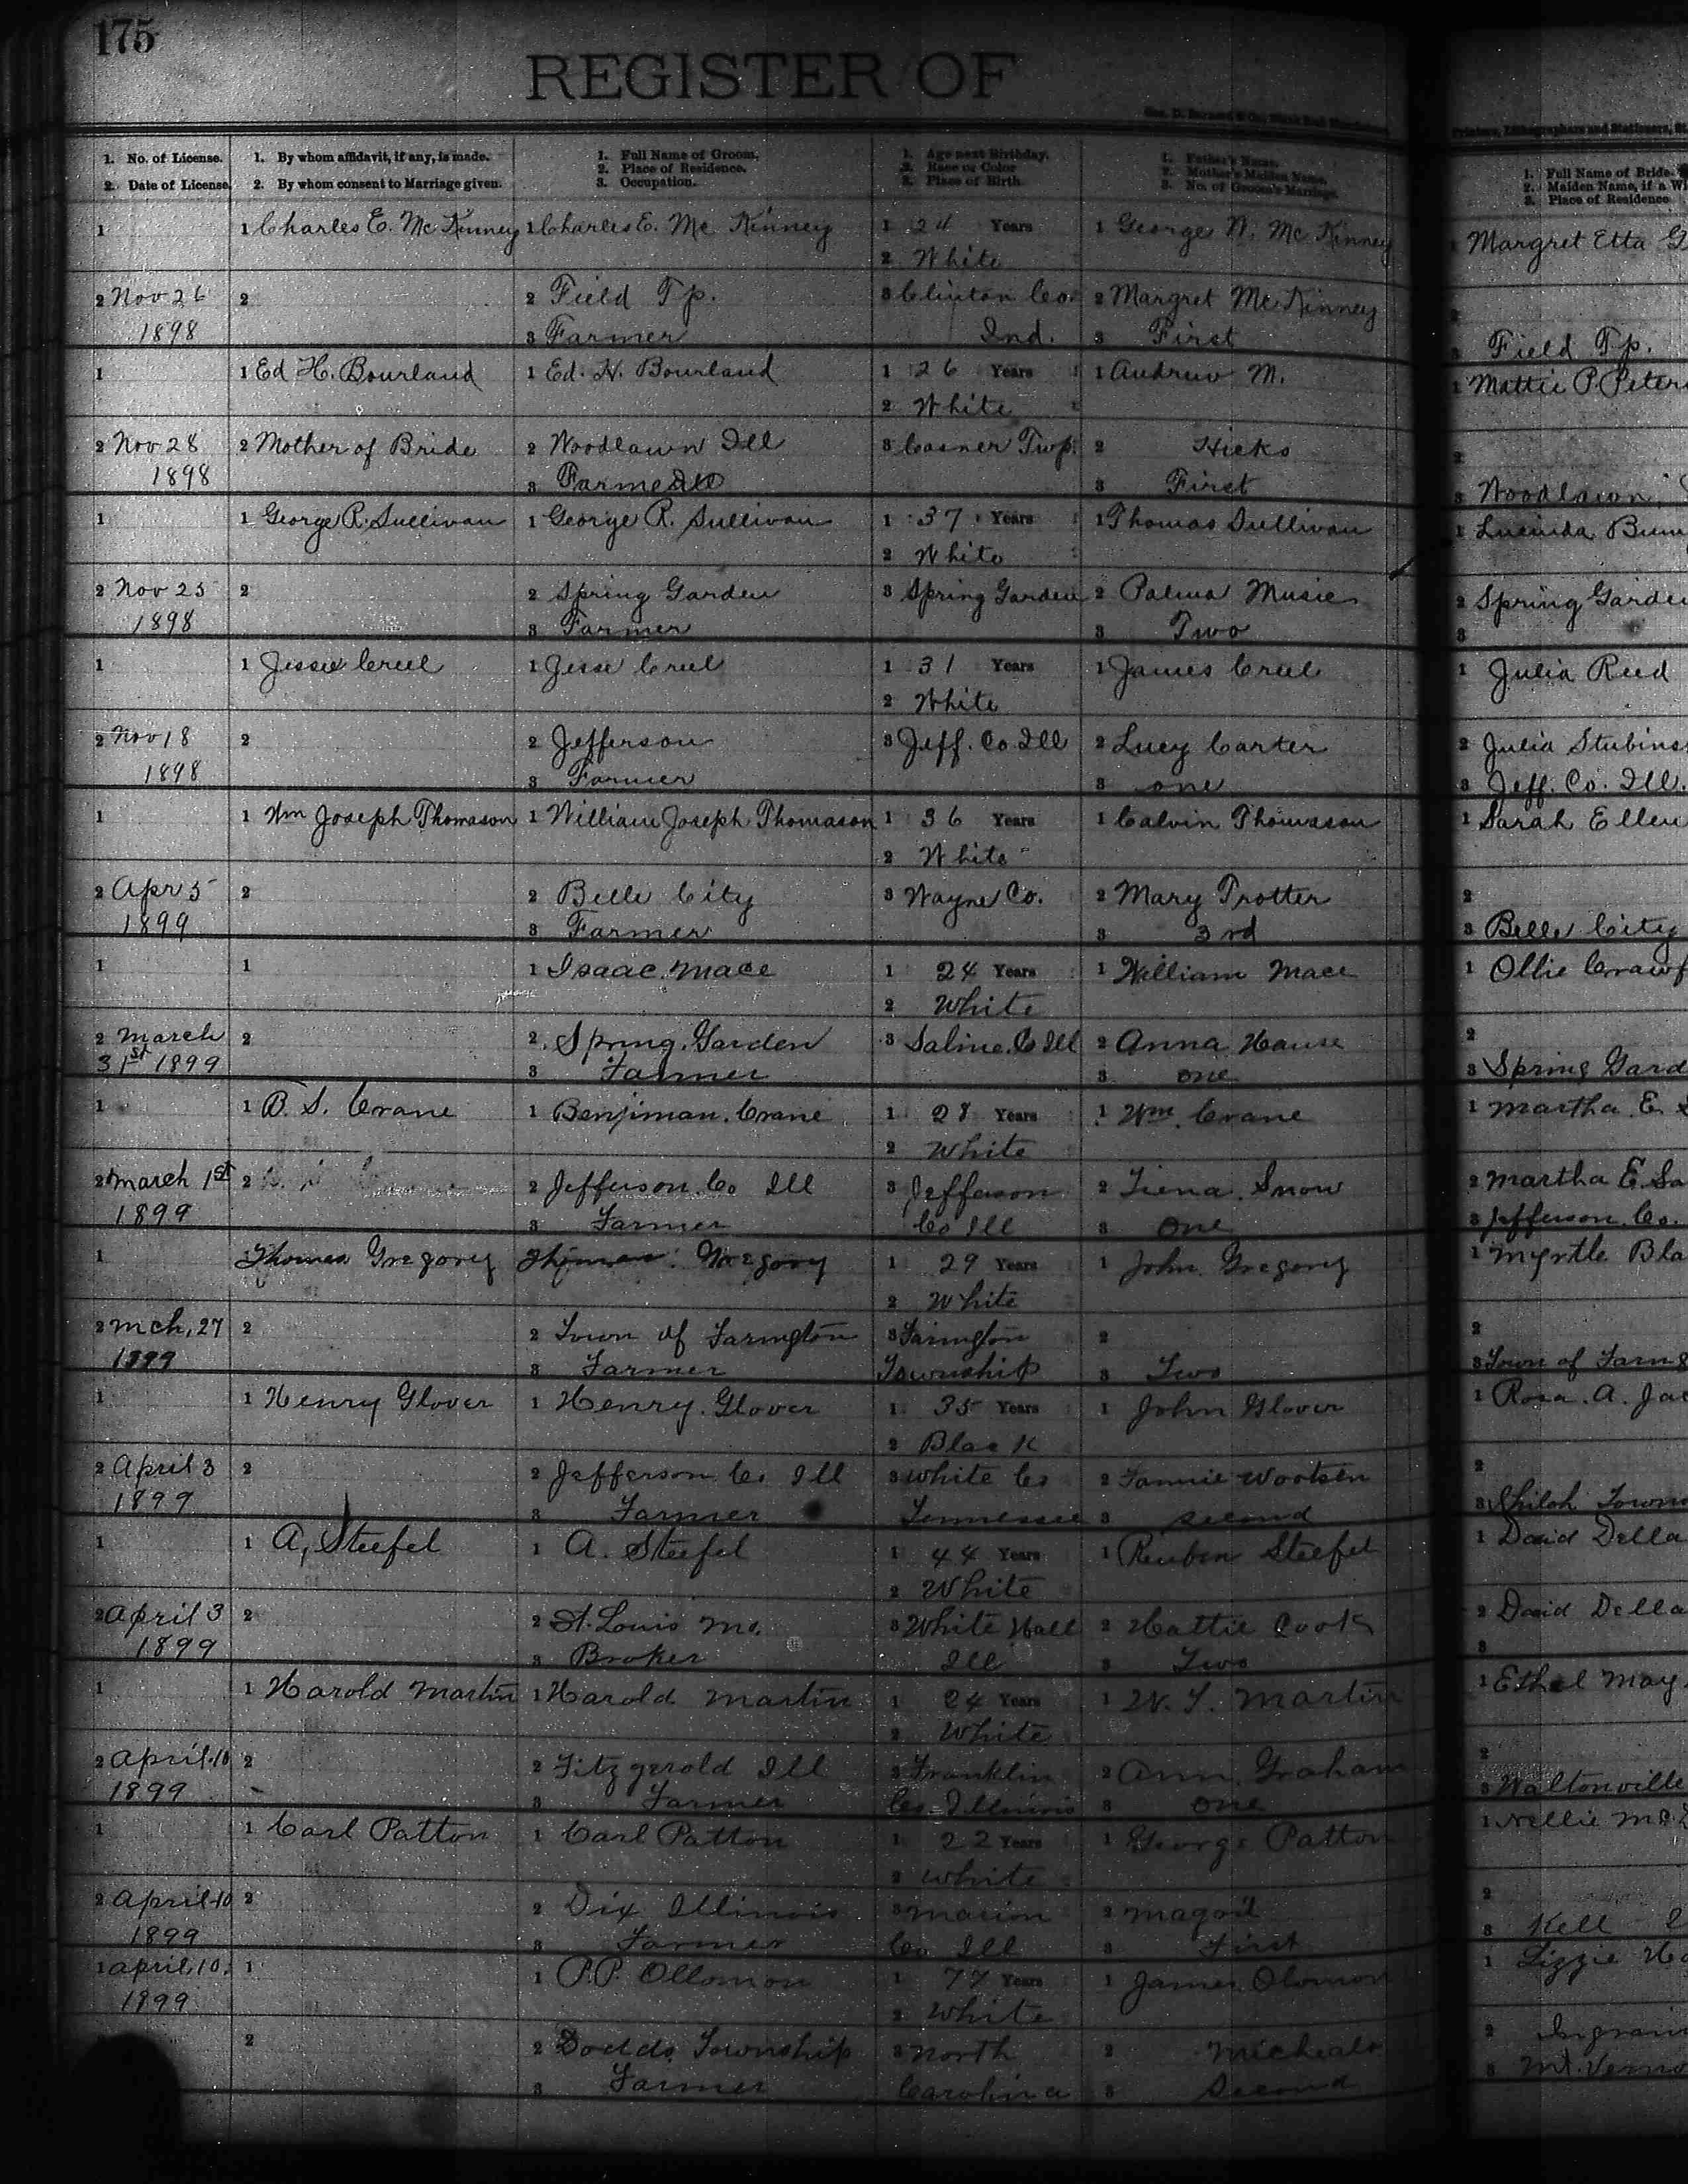 175
REGISTER OF
1. No. of License. 1. By whom affidavit, if any, is made. 1. Full Name of Groom. 1. Age next Birthday. 1. Father's Name. 1. Full Name of Bride.
2. Place of Residence. 2. Race or Color 2. Mother's Maiden Name. 2. Maiden Name, if a Wi
2. Date of License. 2. By whom consent to Marriage given. 3. Occupation. 3. Place of Birth 3. No. of Groom's Marriage. 3. Place of Residence
1 1 Charles E. McKinney 1 Charles E. McKinney 1 24 Years 1 George N. McKinney 1 Margret Etta G
2 White
2 Nov 26 2 2 Field Tp. 3 Clinton Co. 2 Margret McKinney 2
1898 3 Farmer Ind. 3 First 3 Field Tp.
1 1 Ed H. Bourland 1 Ed. H. Bourland 1 26 Years 1 Andrew M. 1 Mattie P. Peter
2 White
2 Nov 28 2 Mother of Bride 2 Woodlawn Ill 3 Casner Twp. 2 Hicks 2
1898 3 Farmer 3 First 3 Woodlawn
1 1 George R. Sullivan 1 George R. Sullivan 1 37 Years 1 Thomas Sullivan 1 Lucinda Bum
2 White
2 Nov 25 2 2 Spring Garden 3 Spring Garden 2 Palina Music 2 Spring Garden
1898 3 Farmer 3 Two 3
1 1 Jesse Creel 1 Jesse Creel 1 31 Years 1 James Creel 1 Julia Reed
2 White
2 Nov 18 2 2 Jefferson 3 Jeff. Co. Ill 2 Lucy Carter 2 Julia Stubins
1898 3 Farmer 3 one 3 Jeff. Co. Ill.
1 1 Wm Joseph Thomason 1 William Joseph Thomason 1 36 Years 1 Calvin Thomason 1 Sarah Ellen
2 White
2 Apr 5 2 2 Belle City 3 Wayne Co. 2 Mary Trotter 2
1899 3 Farmer 3 3rd 3 Belle City
1 1 1 Isaac Mace 1 24 Years 1 William Mace 1 Ollie Crawf
2 White
2 March 2 2 Spring Garden 3 Saline Co Ill 2 Anna Hause 2
31st 1899 3 Farmer 3 one 3 Spring Gard
1 1 B. S. Crane 1 Benjiman Crane 1 28 Years 1 Wm. Crane 1 Martha E. S
2 White
2 March 1st 2 2 Jefferson Co Ill 3 Jefferson 2 Tiena Snow 2 Martha E. Sa
1899 3 Farmer Co Ill 3 One 3 Jefferson Co.
1 Thomas Gregory Thomas Gregory 1 29 Years 1 John Gregory 1 Myrtle Bla
2 White
2 Mch, 27 2 2 Town of Farington 3 Farington 2 2
1899 3 Farmer Township 3 Two 3 Town of Farng
1 1 Henry Glover 1 Henry Glover 1 35 Years 1 John Glover 1 Rosa. A. Jac
2 Black
2 April 3 2 2 Jefferson Co Ill 3 White Co 2 Fannie Wootsen 2
1899 3 Farmer Tennessee 3 second 3 Shiloh Towns
1 1 A, Steefel 1 A. Steefel 1 44 Years 1 Reuben Steefel 1 David Della
2 White
2 April 3 2 2 St. Louis Mo. 3 White Hall 2 Hattie Cook 2 David Della
1899 3 Broker Ill 3 Two 3
1 1 Harold Martin 1 Harold Martin 1 24 Years 1 W. T. Martin 1 Ethel May
2 White
2 April 10 2 2 Fitzgerold Ill 3 Franklin 2 Ann Graham 2
1899 3 Farmer Co Illinois 3 one 3 Waltonville
1 1 Carl Patton 1 Carl Patton 1 22 Years 1 George Patton 1 Nellie
2 White
2 April 10 2 2 Dix Illinois 3 Marion 2 2
1899 3 Farmer Co Ill 3 First 3 Kell
1 April, 10, 1 1 P.P. Ollomon 1 77 Years 1 James Olomon 1 Lizzie
1899 2 White
2 2 Dodds Township 3 North 2 Micheals 2 Ingram
3 Farmer Carolina 3 Second 3 Mt. Verno